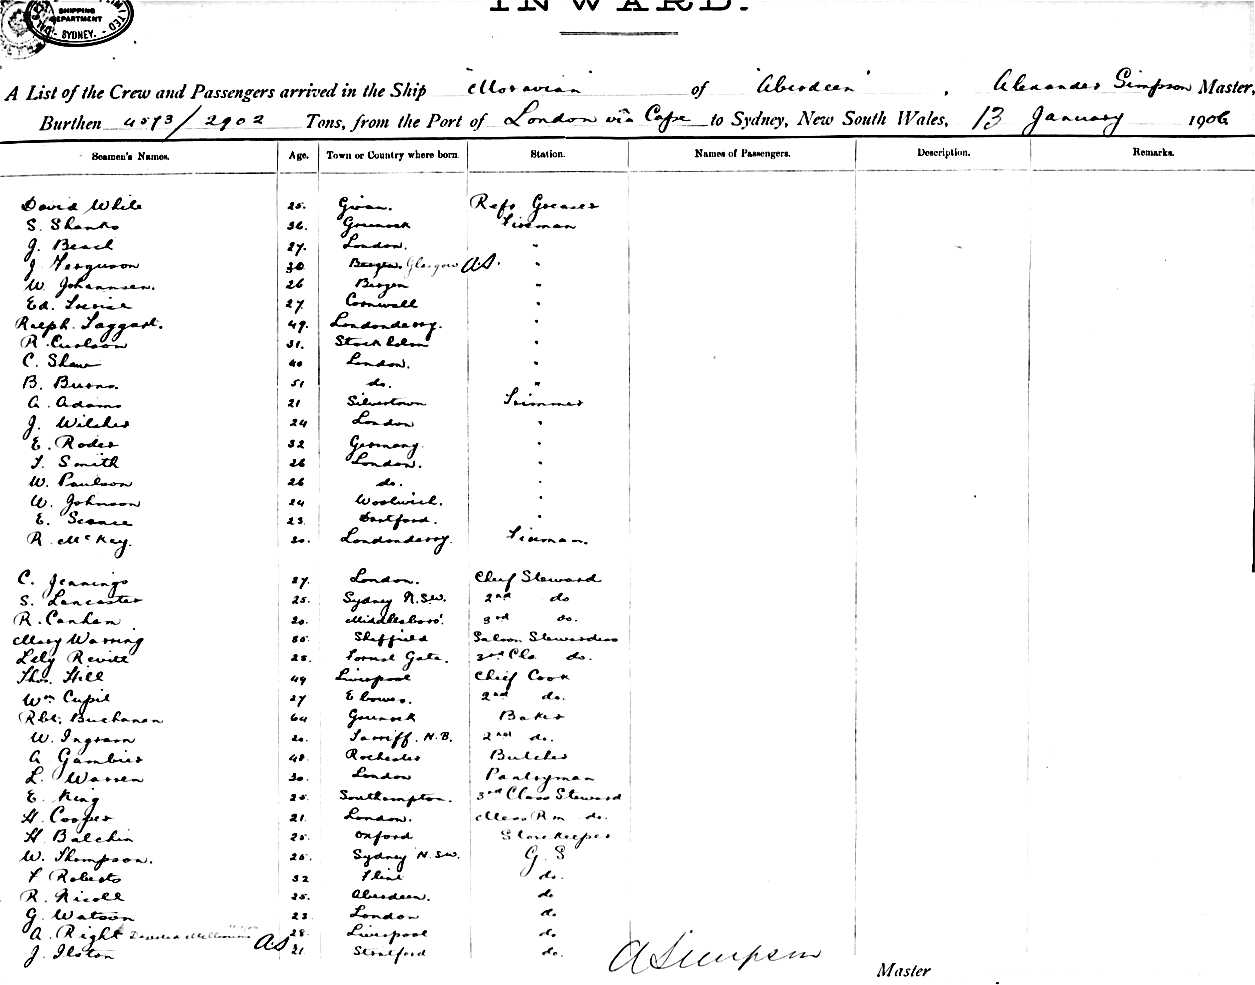 INWARD.
SHIPPING DEPARTMENT
SYDNEY.
A List of the Crew and Passengers arrived in the Ship "Moravian" of "Aberdeen", Alexander Simpson Master,
Burthen 4573/2902 Tons, from the Port of London via Cape to Sydney, New South Wales, 13 January 1906
Seamen's Names. Age. Town or Country where born. Station. Names of Passengers. Description. Remarks.
David White 25. Girvan. Refr Greaser
S. Shanks 36. Greenock Fireman
J. Beach 27. London. "
J Ferguson 30 Bergen. Glasgow AS. "
W. Johannsen. 26 Bergen "
Ed. 27 Cornwall "
Ralph Taggart. 49. Londonderry. "
R. Carlson 31. Stockholm "
C. Shaw 40 London. "
B. Burns. 51 do. "
A. Adams 21 Silvertown Trimmer
J. Wilcher 24 London "
E. Roder 32 Germany "
T. Smith 26 London. "
W. Paulson 26 do. "
W. Johnson 24 Woolwich. "
E. 23 Dartford. "
R. McKay. 20. Londonderry. Fireman.
C. Jennings 27. London. Chief Steward
S. Lancaster 25. Sydney N.S.W. 2nd do
R. Canham 20. Middlesboro'. 3rd do.
Mary Warring Sheffield Saloon Stewardess
Lily Revill 28. Forest Gate. 3rd Cls do.
Thos. Hill 49 Liverpool Chief Cook
Wm Cupil 27 2nd do.
Rbt. Buchanan 64 Greenock Baker
W. Ingram 20. Turriff. N.B. 2nd do.
A Gambier 48. Rochester Butcher
L. Warren 30. London Pantryman
E. King 25. Southampton. 3rd Class Steward
H. Cooper 21. London. Mess Rm do.
H Balchin 25. Oxford Storekeeper
W. Thompson. 25. Sydney N.S.W. G S
F Roberts 32 Flint do.
R. Nicoll 25. Aberdeen. do
G. Watson 23 London do
A. Right Deserted Melbourne AS 28. Liverpool do
J. Ilston 21 Stratford do.
A Simpson
Master